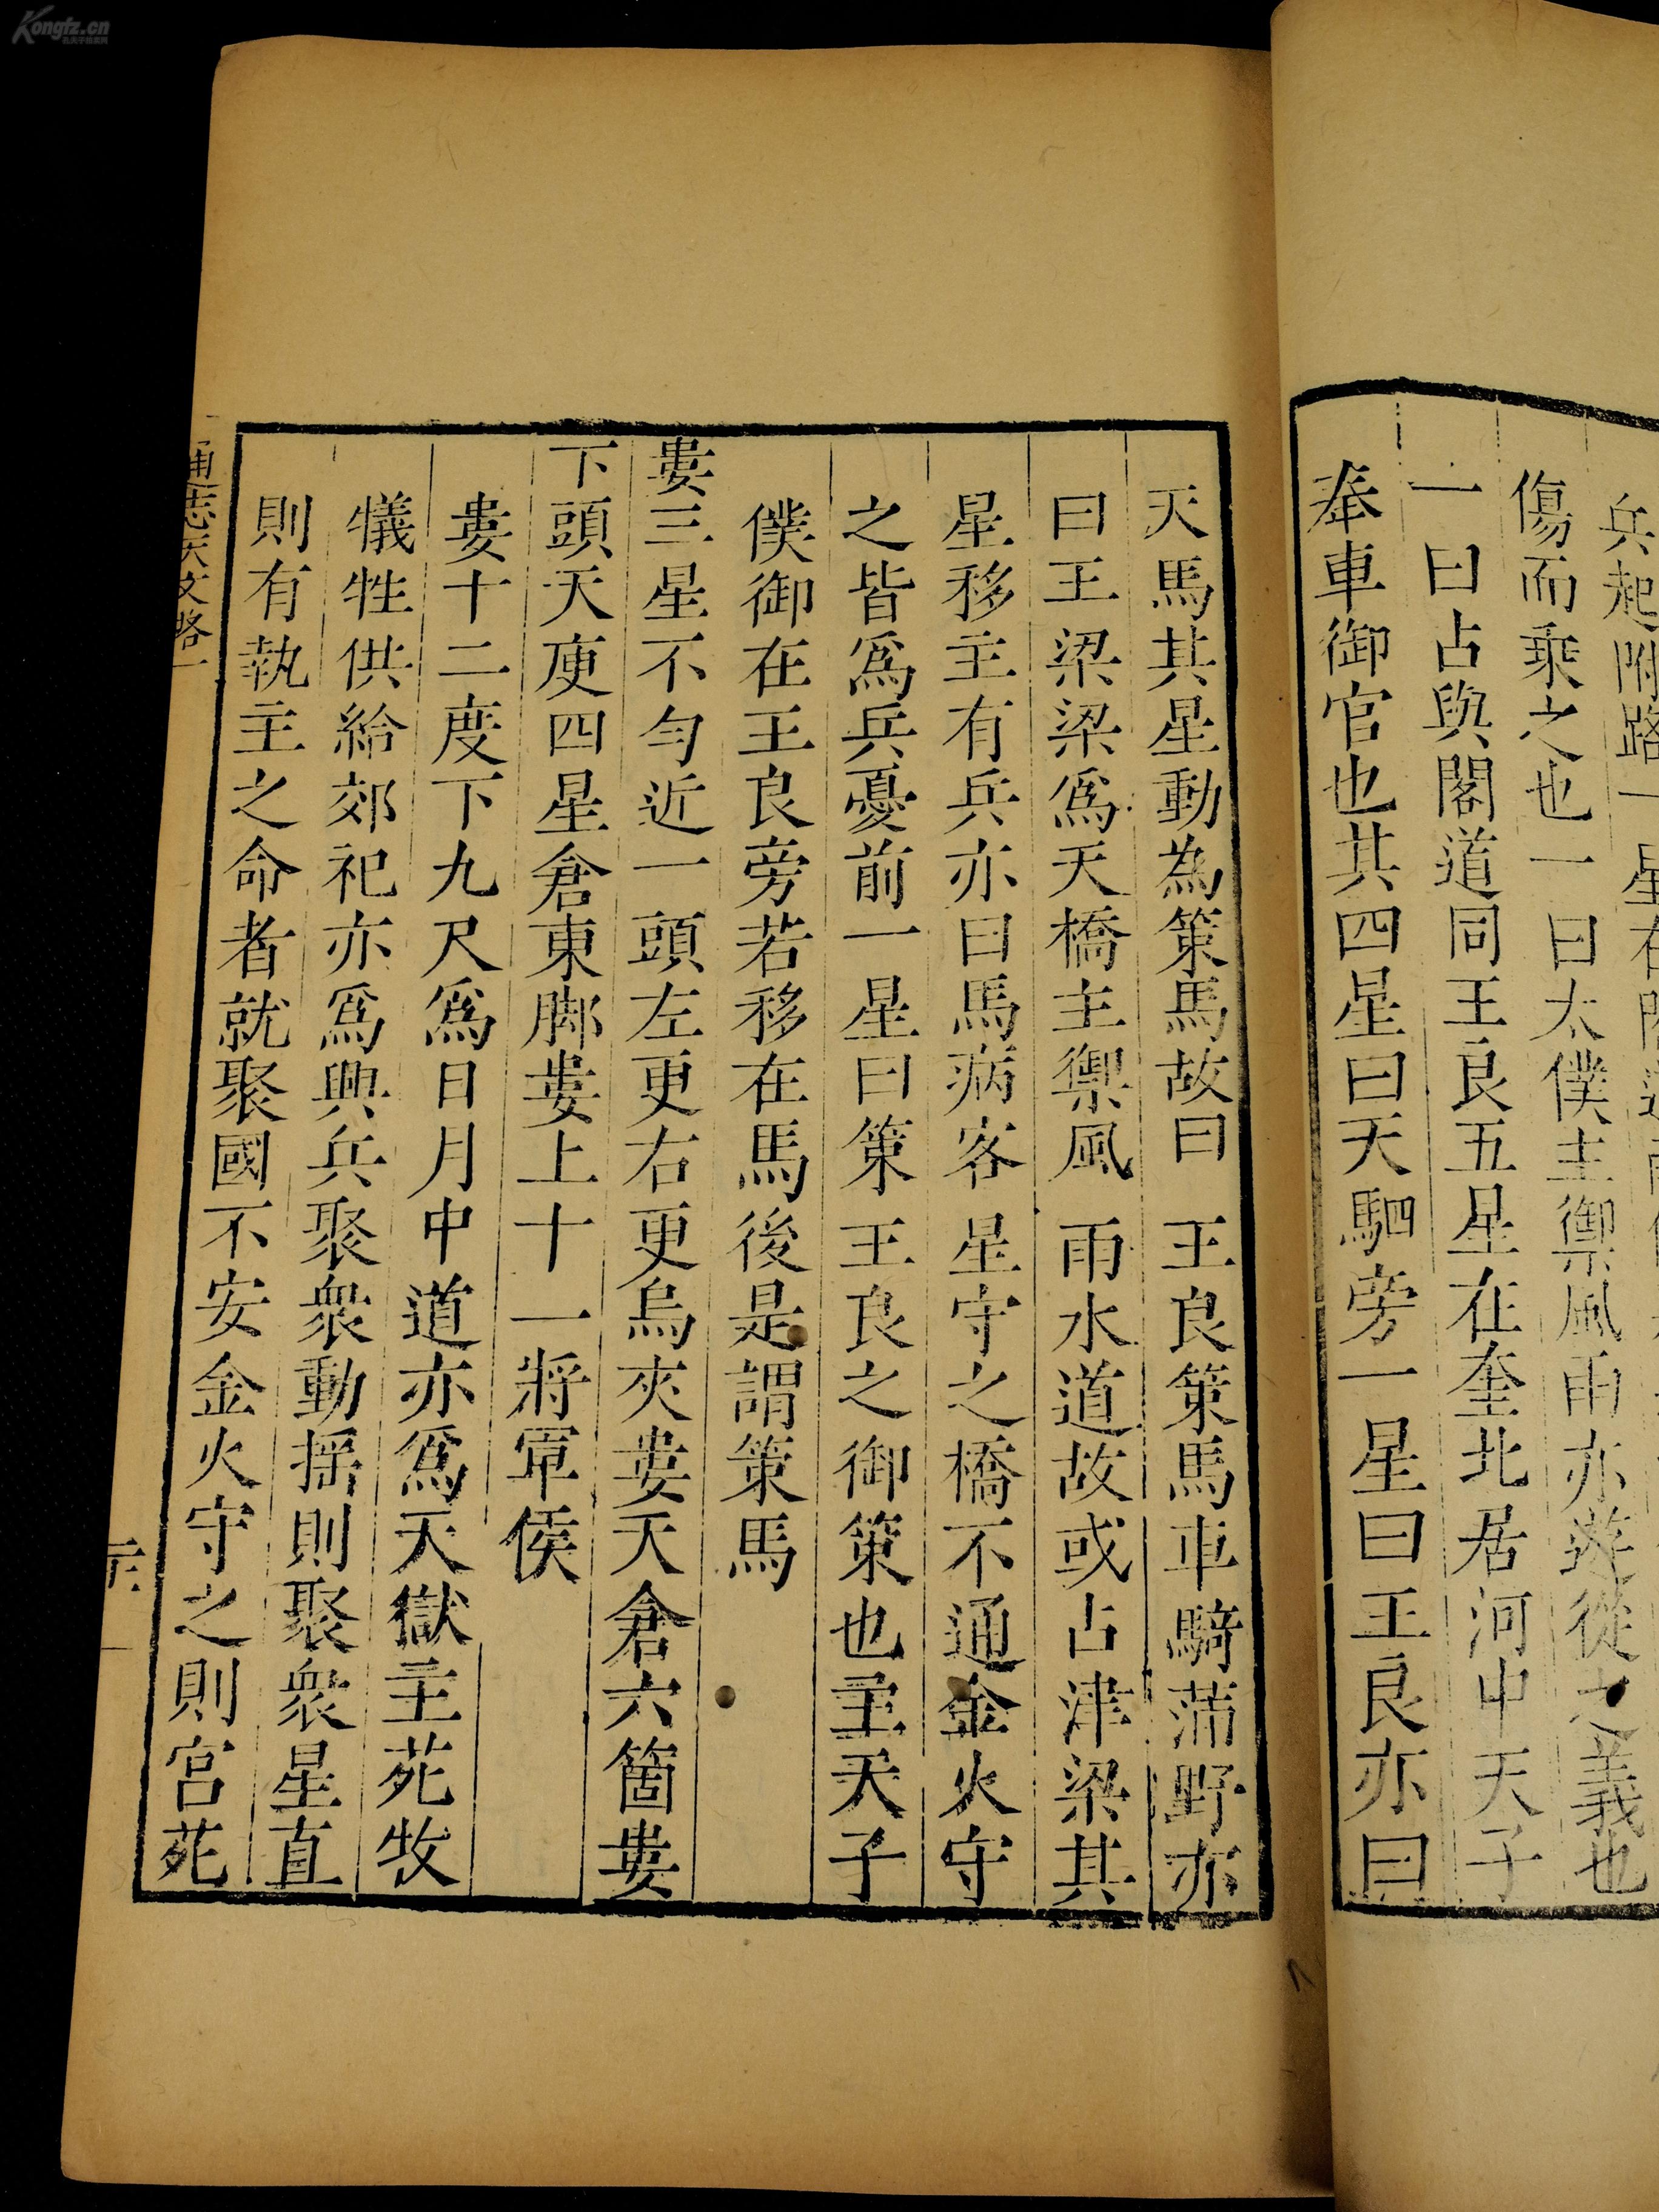 Kongfz.cn
兵起附路一星在閣道南
傷而乘之也一曰太僕主禦風雨亦遊從之義也
一曰占與閣道同王良五星在奎北居河中天子
奉車御官也其四星曰天駟旁一星曰王良亦曰
天馬其星動為策馬故曰王良策馬車騎滿野亦
曰王梁梁爲天橋主禦風雨水道故或占津梁其
星移主有兵亦曰馬病客星守之橋不通金火守
之皆爲兵憂前一星曰策王良之御策也主天子
僕御在王良旁若移在馬後是謂策馬
婁三星不勻近一頭左更右更烏夾婁天倉六箇婁
下頭天庾四星倉東脚婁上十一將軍侯
婁十二度下九尺爲日月中道亦爲天獄主苑牧
犧牲供給郊祀亦爲興兵聚衆動搖則聚衆星直
則有執主之命者就聚國不安金火守之則宮苑
通志天文略一